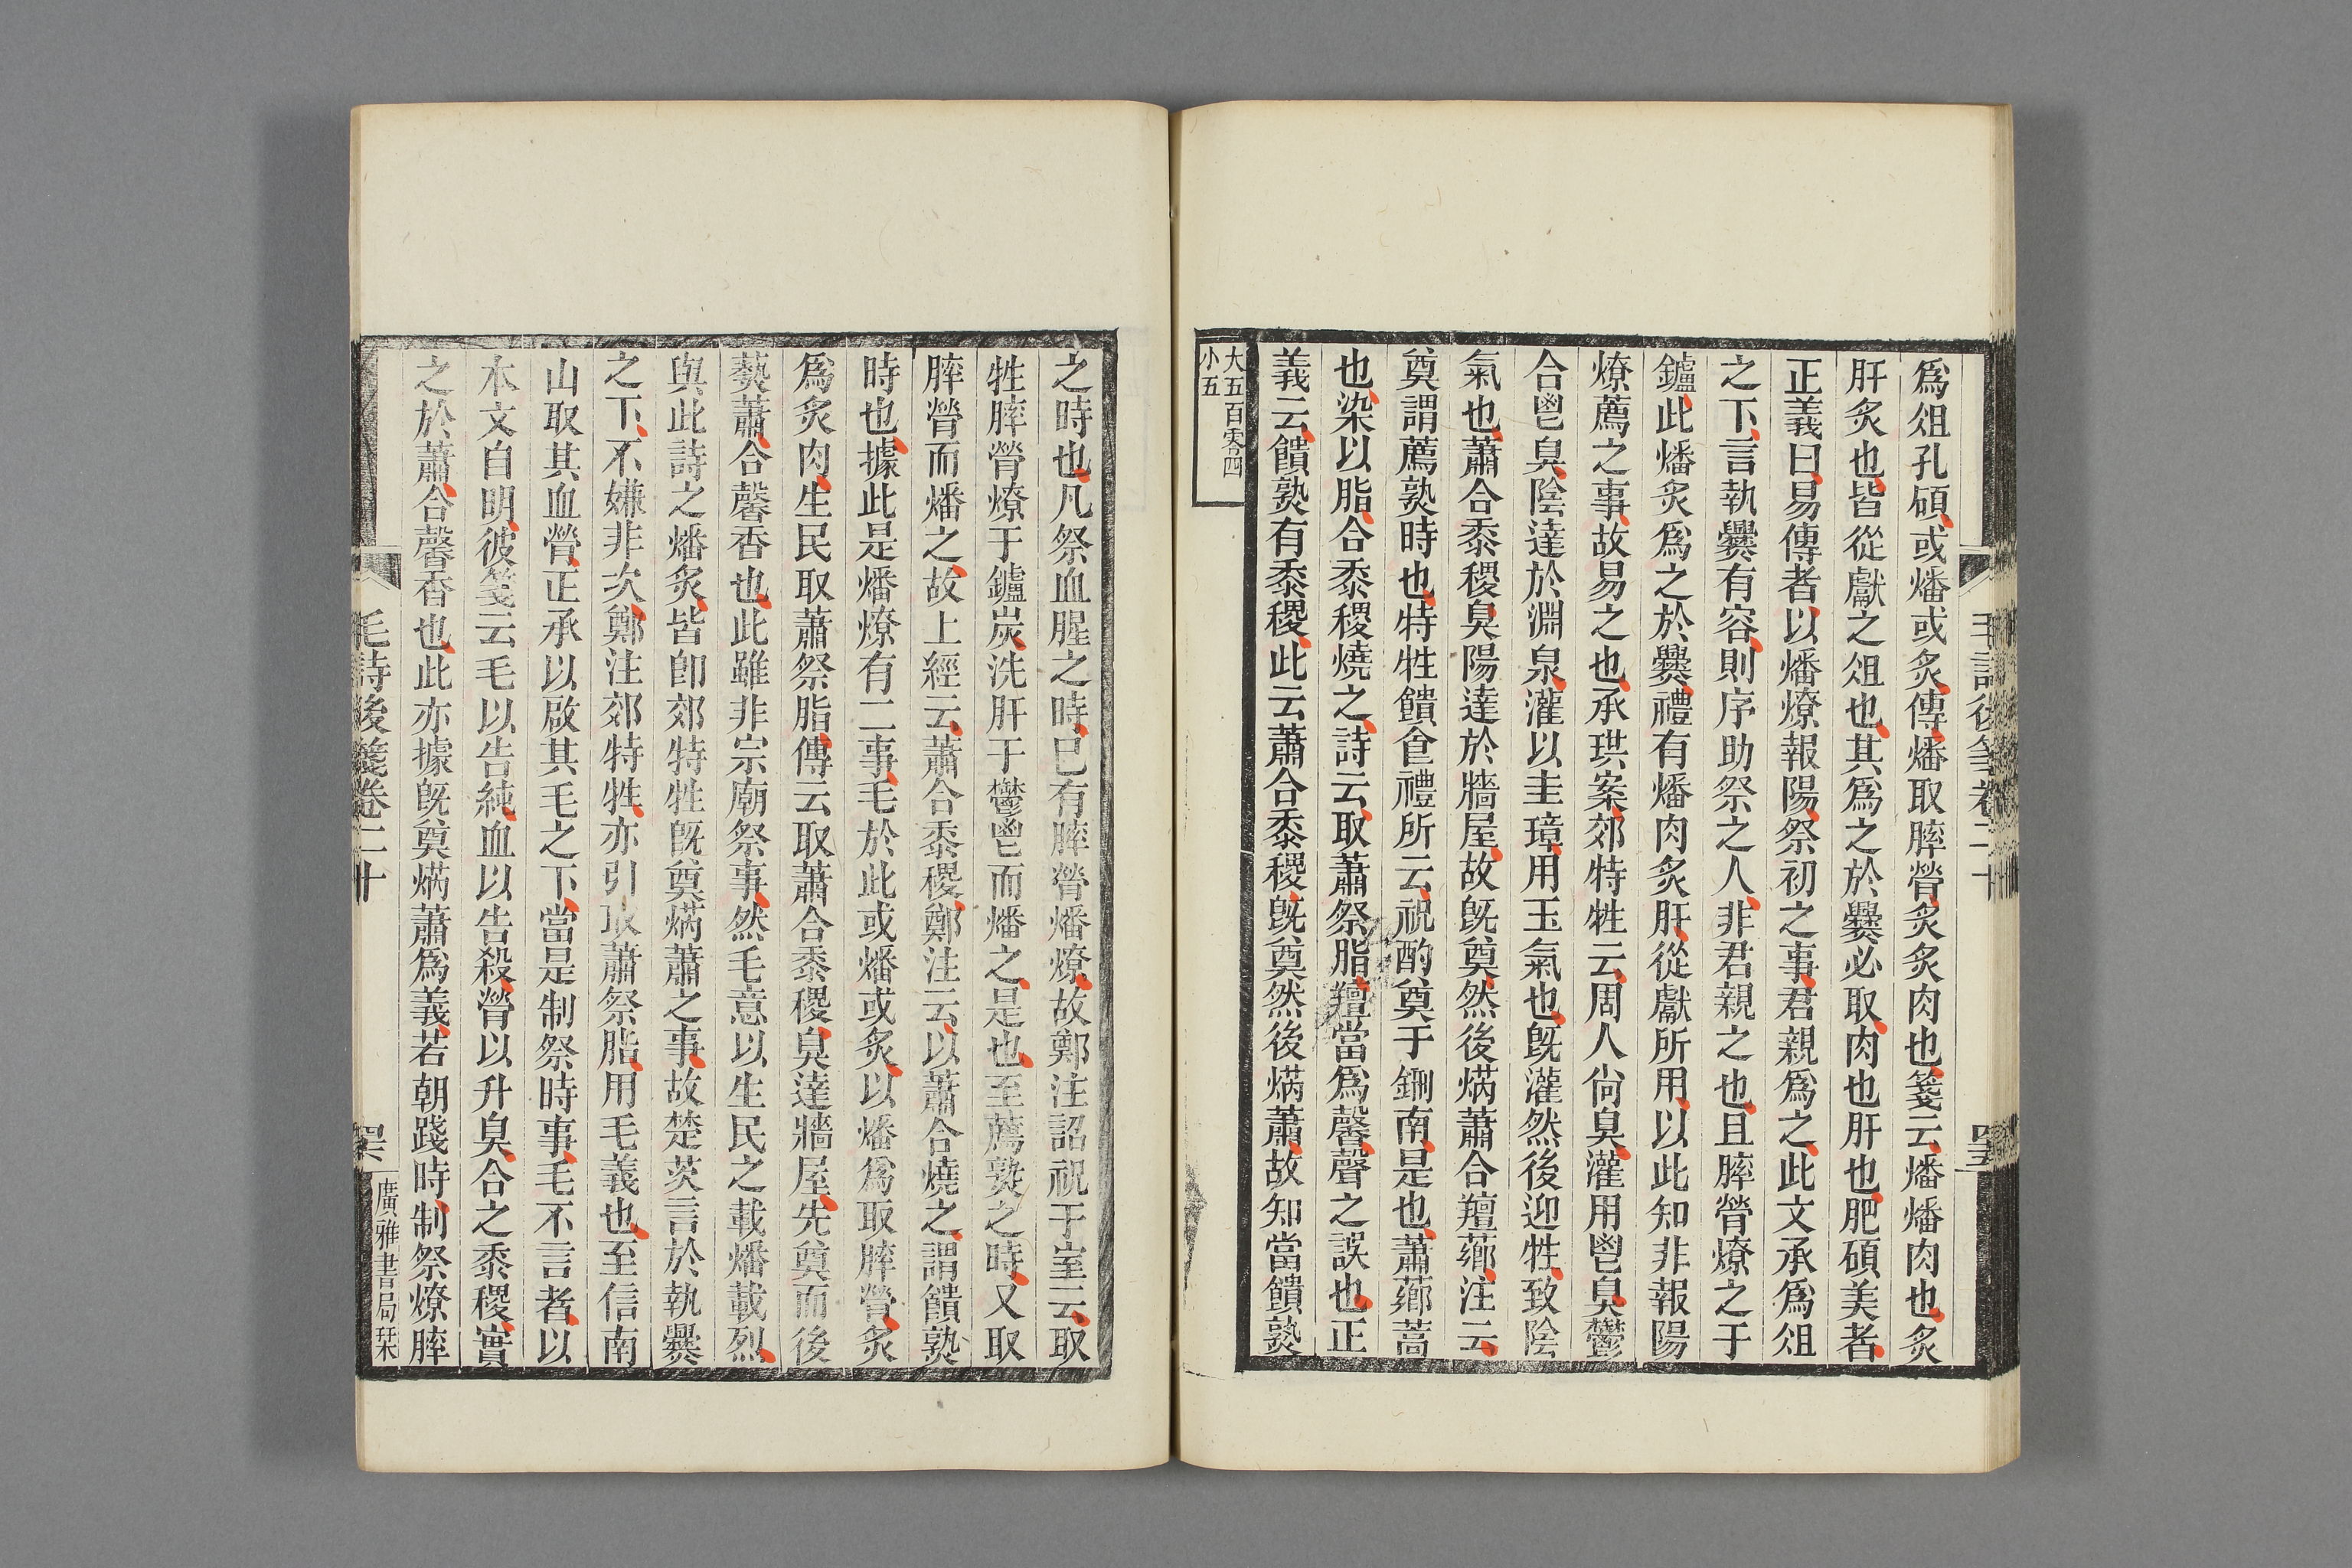 爲俎孔碩或燔或炙傳燔取膟膋炙炙肉也箋云燔燔肉也炙
肝炙也皆從獻之俎也其爲之於爨必取肉也肝也肥碩美者
正義曰易傳者以燔燎報陽祭初之事君親爲之此文承爲俎
之下言執爨有容則序助祭之人非君親之也且膟膋燎之于
鑪此燔炙爲之於爨禮有燔肉炙肝從獻所用以此知非報陽
燎薦之事故易之也承珙案郊特牲云周人尙臭灌用鬯臭鬱
合鬯臭陰達於淵泉灌以圭璋用玉氣也旣灌然後迎牲致陰
氣也蕭合黍稷臭陽達於牆屋故旣奠然後焫蕭合羶薌注云
奠謂薦孰時也特牲饋食禮所云祝酌奠于鉶南是也蕭薌蒿
也染以脂合黍稷燒之詩云取蕭祭脂羶當爲馨聲之誤也正
義云饋孰有黍稷此云蕭合黍稷旣奠然後焫蕭故知當饋孰
大五百零四
小五
毛詩後箋卷二十
之時也凡祭血腥之時已有膟膋燔燎故鄭注詔祝于室云取
牲膟膋燎于鑪炭洗肝于鬱鬯而燔之是也至薦孰之時又取
膟膋而燔之故上經云蕭合黍稷鄭注云以蕭合燒之謂饋孰
時也據此是燔燎有二事毛於此或燔或炙以燔爲取膟膋炙
爲炙肉生民取蕭祭脂傳云取蕭合黍稷臭達牆屋先奠而後
爇蕭合馨香也此雖非宗廟祭事然毛意以生民之載燔載烈
與此詩之燔炙皆卽郊特牲旣奠焫蕭之事故楚茨言於執爨
之下不嫌非次鄭注郊特牲亦引取蕭祭脂用毛義也至信南
山取其血膋正承以啟其毛之下當是制祭時事毛不言者以
本文自明彼箋云毛以告純血以告殺膋以升臭合之黍稷實
之於蕭合馨香也此亦據旣奠焫蕭爲義若朝踐時制祭燎膟
毛詩後箋卷二十
廣雅書局栞